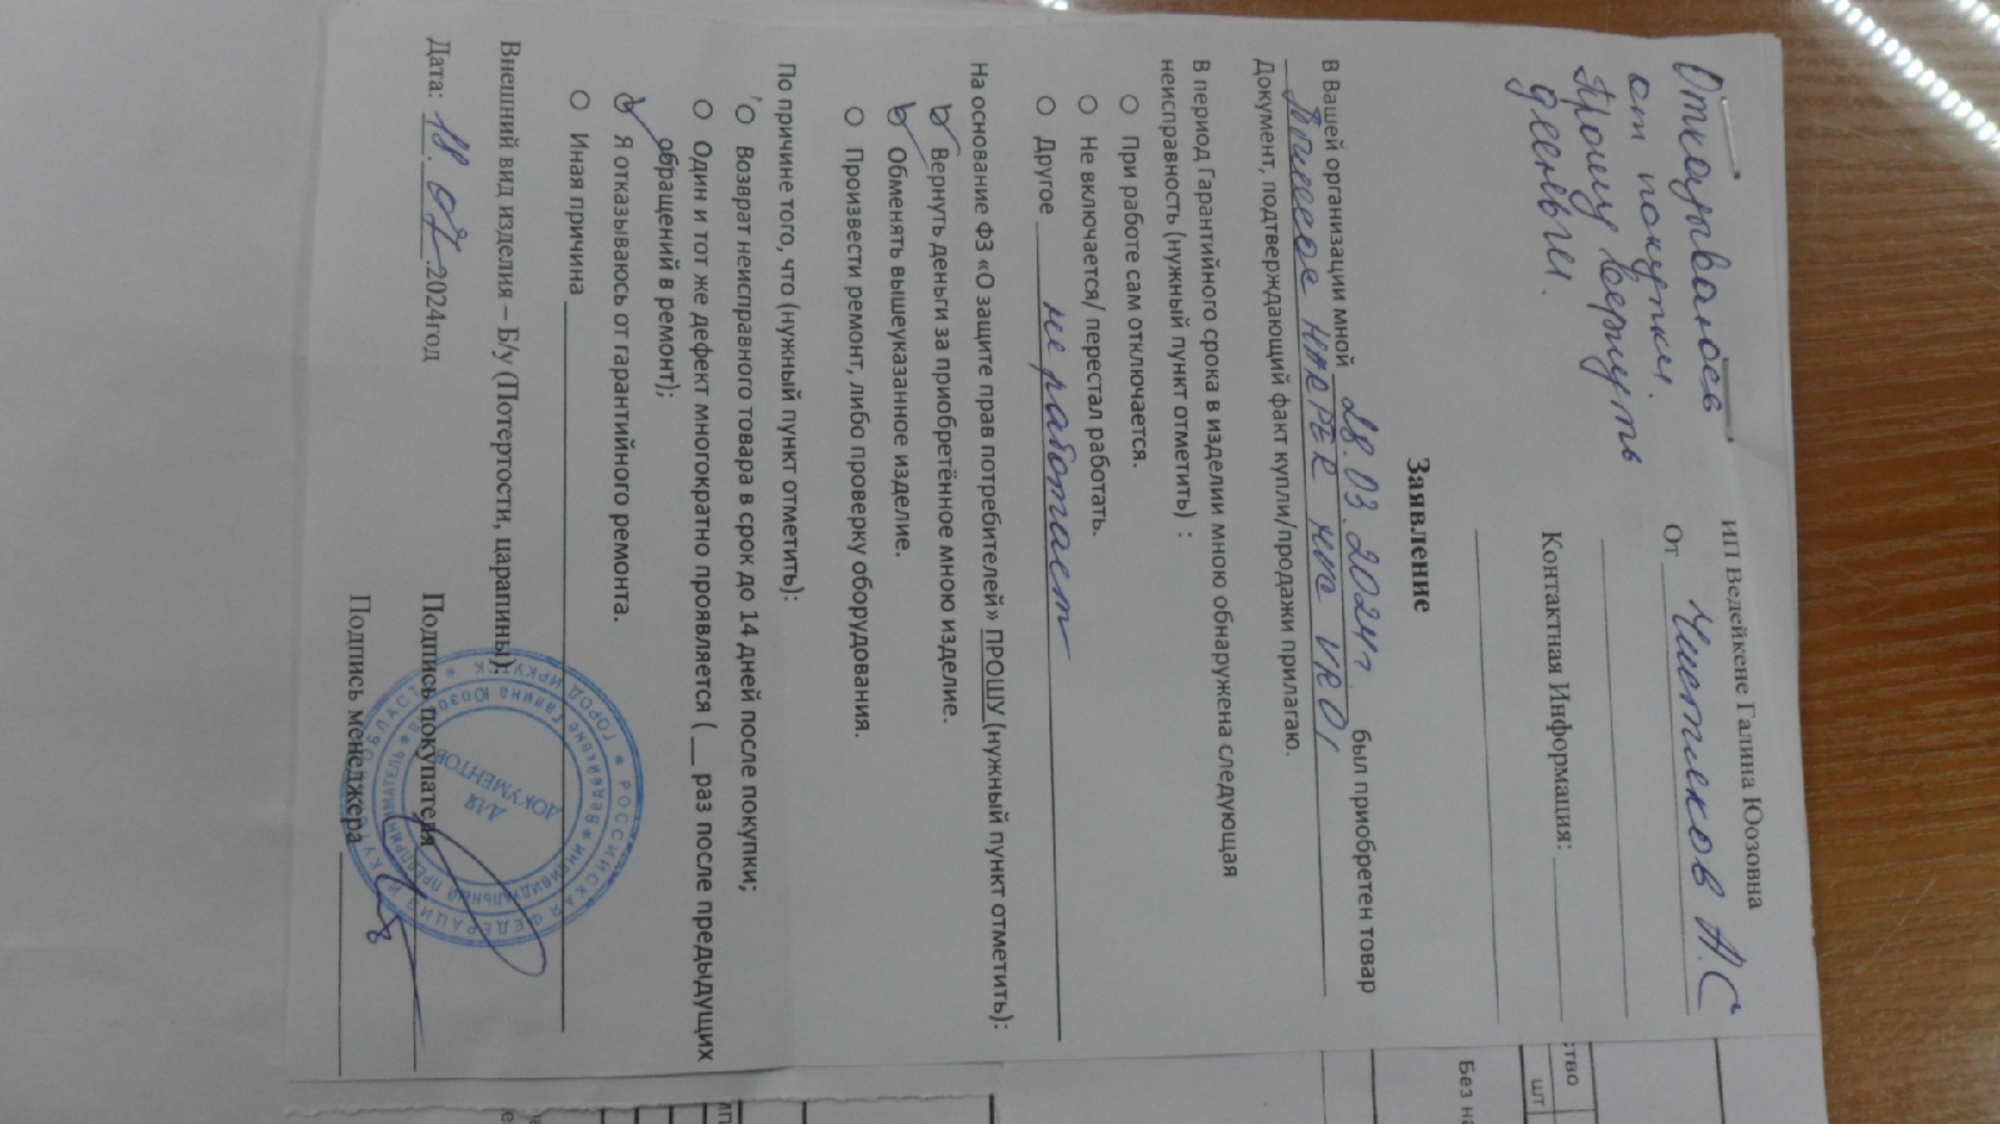 Отказываюсь
от покупки.
Прошу вернуть
деньги.
ИП Ведейкене Галина Юозовна
От Чистяков А.С
Контактная Информация:
Заявление
В Вашей организации мной 28.03.2024г. был приобретен товар
HARPER
Документ, подтверждающий факт купли/продажи прилагаю.
В период Гарантийного срока в изделии мною обнаружена следующая
неисправность (нужный пункт отметить) :
При работе сам отключается.
Не включается/ перестал работать.
Другое не работает
На основание ФЗ «О защите прав потребителей» ПРОШУ (нужный пункт отметить):
Вернуть деньги за приобретённое мною изделие.
Обменять вышеуказанное изделие.
Произвести ремонт, либо проверку оборудования.
По причине того, что (нужный пункт отметить):
Возврат неисправного товара в срок до 14 дней после покупки;
Один и тот же дефект многократно проявляется ( __ раз после предыдущих
обращений в ремонт);
Я отказываюсь от гарантийного ремонта.
Иная причина
Внешний вид изделия – Б/у (Потертости, царапины);
Дата: 18.07.2024год
Подпись покупателя
Подпись менеджера
РОССИЙСКАЯ ФЕДЕРАЦИЯ * ИРКУТСКАЯ ОБЛАСТЬ * ГОРОД ИРКУТСК *
индивидуальный предприниматель * Ведейкене Галина Юозовна *
ДЛЯ
ДОКУМЕНТОВ
ство
шт
Без на